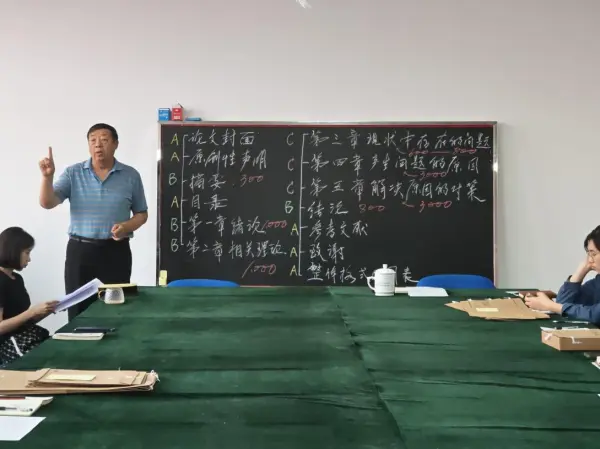 A 论文封面
A 原创性声明
B 摘要 300
A 目录
B 第一章 绪论 1000
B 第二章 相关理论
1000
C 第三章 现状中存在的问题
C 第四章 产生问题的原因
3000
C 第五章 解决原因的对策
B 结论 800 3000
A 参考文献
A 致谢
A 整体格式